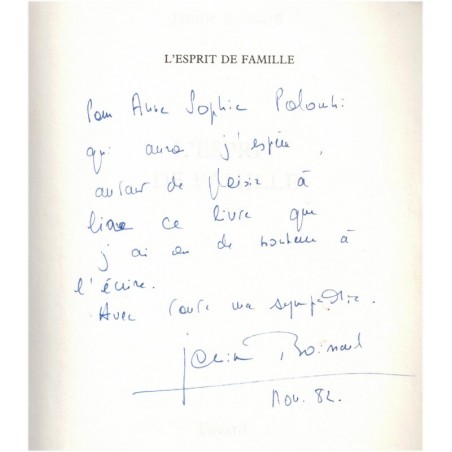 L'ESPRIT DE FAMILLE
Pour Anne Sophie
qui aura j'espère,
autant de plaisir à
lire ce livre que
j'ai eu de bonheur à
l'écrire.
Avec toute ma sympathie.
Janine Boissard
Nov. 82.